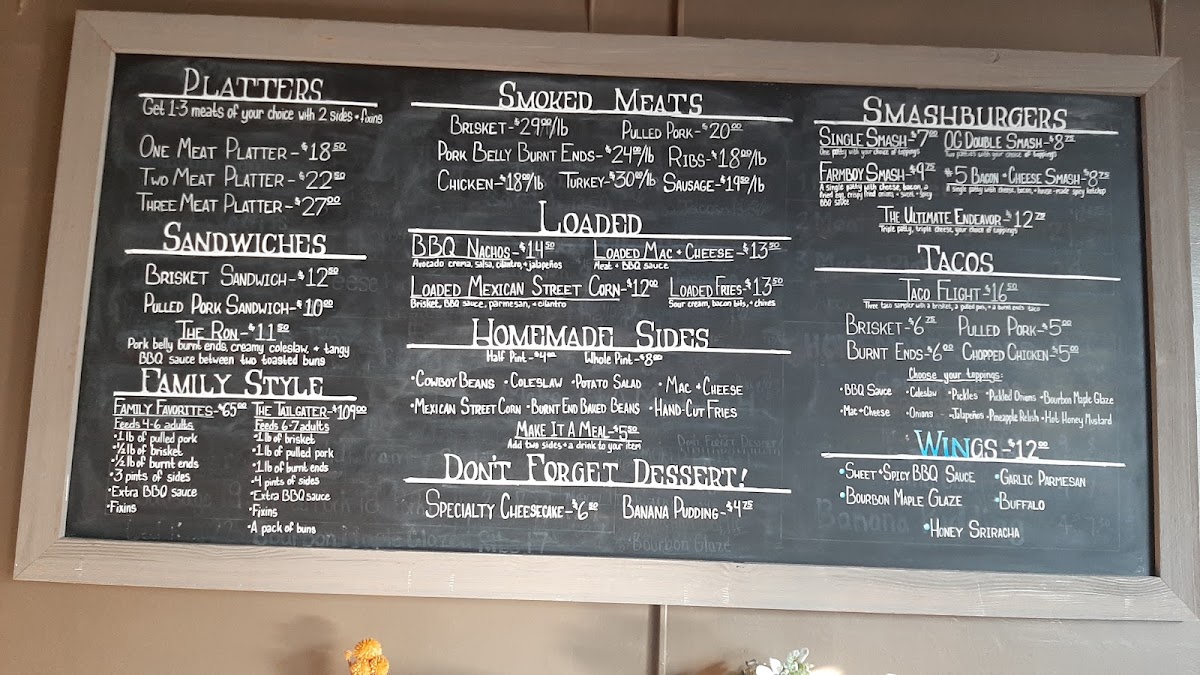 PLATTERS
Get 1-3 meats of your choice with 2 sides + fixins
ONE MEAT PLATTER-$18.50
TWO MEAT PLATTER-$22.50
THREE MEAT PLATTER-$27.00
SANDWICHES
BRISKET SANDWICH-$12.50
PULLED PORK SANDWICH-$10.00
THE RON-$11.50
Pork belly burnt ends, creamy coleslaw, + tangy
BBQ sauce between two toasted buns
FAMILY STYLE
FAMILY FAVORITES-$65.00
Feeds 4-6 adults
•1 lb of pulled pork
•½ lb of brisket
•½ lb of burnt ends
•3 pints of sides
•Extra BBQ sauce
•Fixins
THE TAILGATER-$109.00
Feeds 6-7 adults
•1 lb of brisket
•1 lb of pulled pork
•1 lb of burnt ends
•4 pints of sides
•Extra BBQ sauce
•Fixins
•A pack of buns
SMOKED MEATS
BRISKET-$29.99/lb PULLED PORK-$20.00
PORK BELLY BURNT ENDS-$24.00/lb RIBS-$18.00/lb
CHICKEN-$18.99/lb TURKEY-$30.00/lb SAUSAGE-$19.50/lb
LOADED
BBQ NACHOS-$14.50 LOADED MAC + CHEESE-$13.50
Avocado crema, salsa, cilantro, + jalapeños Meat + BBQ sauce
LOADED MEXICAN STREET CORN-$12.00 LOADED FRIES-$13.50
Brisket, BBQ sauce, parmesan, + cilantro Sour cream, bacon bits, + chives
HOMEMADE SIDES
Half Pint-$4.00 Whole Pint-$8.00
•COWBOY BEANS •COLESLAW •POTATO SALAD •MAC + CHEESE
•MEXICAN STREET CORN •BURNT END BAKED BEANS •HAND-CUT FRIES
MAKE IT A MEAL-$5.50
Add two sides + a drink to your item
DON'T FORGET DESSERT!
SPECIALTY CHEESECAKE-$6.50 BANANA PUDDING-$4.75
SMASHBURGERS
SINGLE SMASH-$7.00 OG DOUBLE SMASH-$8.75
One patty with your choice of toppings Two patties with your choice of toppings
FARMBOY SMASH-$9.75 #5 BACON + CHEESE SMASH-$8.75
A single patty with cheese, bacon, a
fried egg, crispy fried onions + sweet + spicy
BBQ sauce
A single patty with cheese, bacon, + house-made spicy ketchup
THE ULTIMATE ENDEAVOR-$12.75
Triple patty, triple cheese, your choice of toppings
TACOS
TACO FLIGHT-$16.50
Three taco sampler with a brisket, a pulled pork, + a burnt ends taco
BRISKET-$6.75 PULLED PORK-$5.00
BURNT ENDS-$6.00 CHOPPED CHICKEN-$5.00
Choose your toppings:
•BBQ Sauce •Coleslaw •Pickles •Pickled Onions •Bourbon Maple Glaze
•Mac+Cheese •Onions •Jalapeños •Pineapple Relish •Hot Honey Mustard
WINGS-$12.00
•SWEET+SPICY BBQ SAUCE •GARLIC PARMESAN
•BOURBON MAPLE GLAZE •BUFFALO
•HONEY SRIRACHA